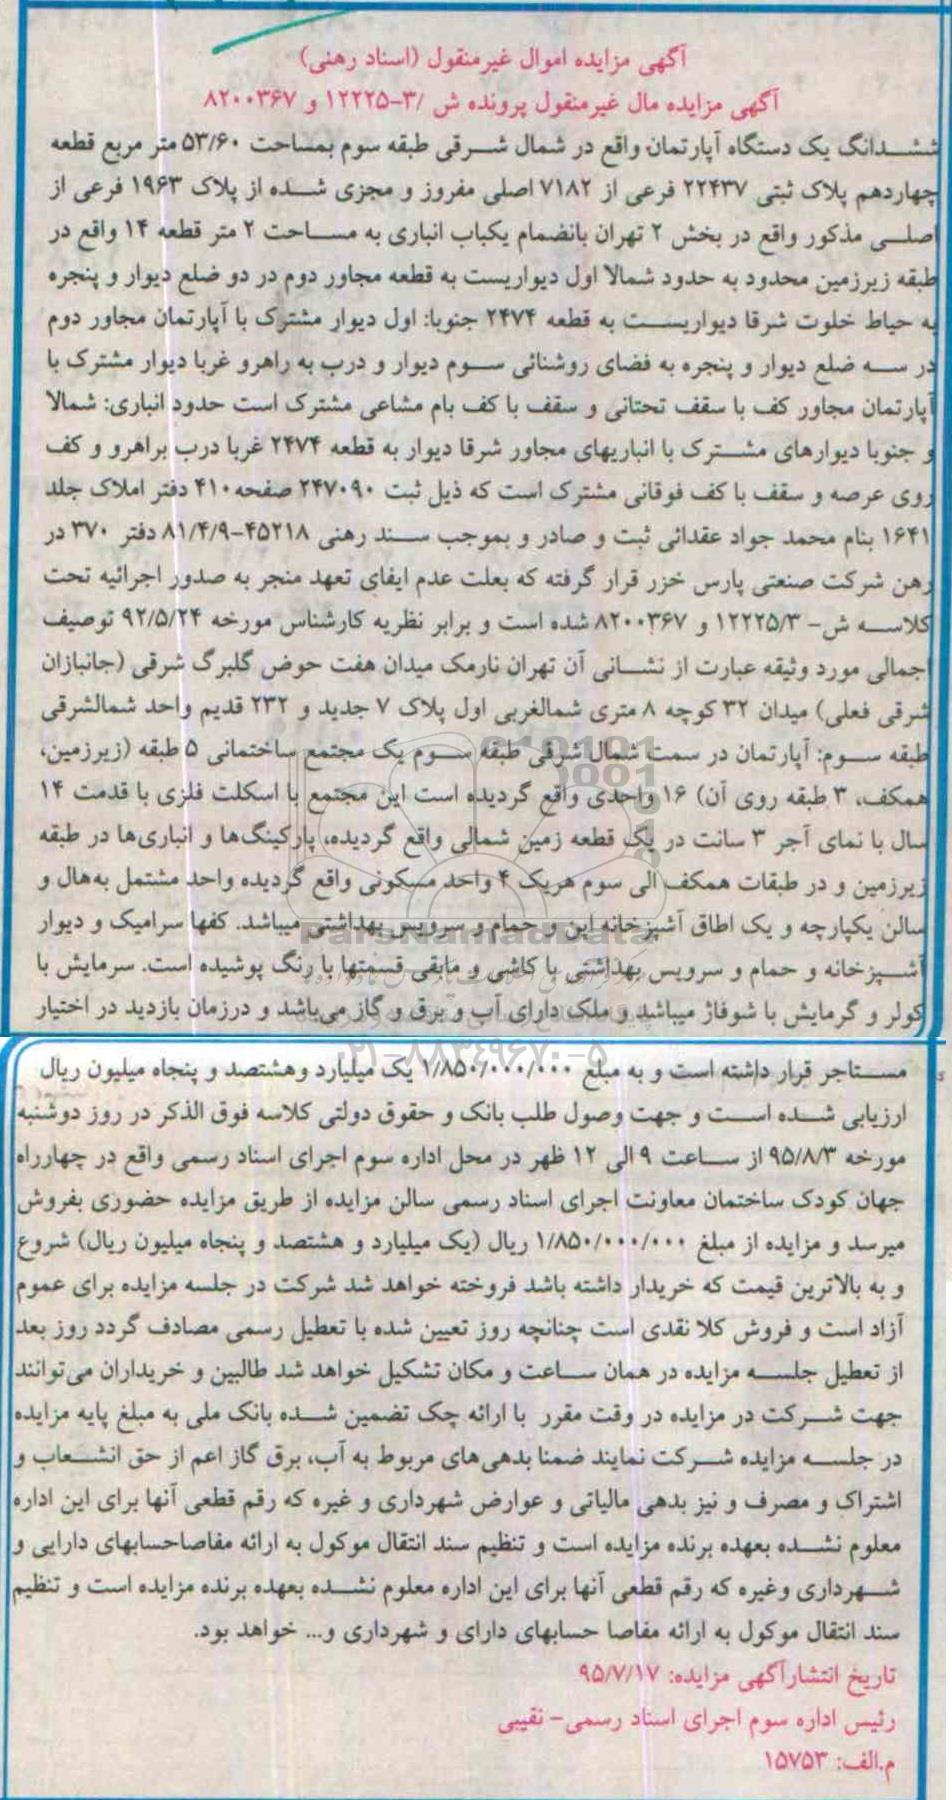 آگهی مزایده اموال غیرمنقول (اسناد رهنی)
آگهی مزایده مال غیرمنقول پرونده ش /۳-۱۲۲۲۵ و ۸۲۰۰۳۶۷
ششدانگ یک دستگاه آپارتمان واقع در شمال شرقی طبقه سوم بمساحت ۵۳/۶۰ متر مربع قطعه
چهاردهم پلاک ثبتی ۲۲۴۳۷ فرعی از ۷۱۸۲ اصلی مفروز و مجزی شده از پلاک ۱۹۶۳ فرعی از
اصلی مذکور واقع در بخش ۲ تهران بانضمام یکباب انباری به مساحت ۲ متر قطعه ۱۴ واقع در
طبقه زیرزمین محدود به حدود شمالا اول دیواریست به قطعه مجاور دوم در دو ضلع دیوار و پنجره
به حیاط خلوت شرقا دیواریست به قطعه ۲۴۷۴ جنوبا: اول دیوار مشترک با آپارتمان مجاور دوم
در سه ضلع دیوار و پنجره به فضای روشنائی سوم دیوار و درب به راهرو غربا دیوار مشترک با
آپارتمان مجاور کف با سقف تحتانی و سقف با کف بام مشاعی مشترک است حدود انباری: شمالا
و جنوبا دیوارهای مشترک با انباریهای مجاور شرقا دیوار به قطعه ۲۴۷۴ غربا درب براهرو و کف
روی عرصه و سقف با کف فوقانی مشترک است که ذیل ثبت ۲۴۷۰۹۰ صفحه ۴۱۰ دفتر املاک جلد
۱۶۴۱ بنام محمد جواد عقدائی ثبت و صادر و بموجب سند رهنی ۴۵۲۱۸-۸۱/۴/۹ دفتر ۳۷۰ در
رهن شرکت صنعتی پارس خزر قرار گرفته که بعلت عدم ایفای تعهد منجر به صدور اجرائیه تحت
کلاسه ش- ۱۲۲۲۵/۳ و ۸۲۰۰۳۶۷ شده است و برابر نظریه کارشناس مورخه ۹۲/۵/۲۴ توصیف
اجمالی مورد وثیقه عبارت از نشانی آن تهران نارمک میدان هفت حوض گلبرگ شرقی (جانبازان
شرقی فعلی) میدان ۳۲ کوچه ۸ متری شمالغربی اول پلاک ۷ جدید و ۲۳۲ قدیم واحد شمالشرقی
طبقه سوم: آپارتمان در سمت شمال شرقی طبقه سوم یک مجتمع ساختمانی ۵ طبقه (زیرزمین،
همکف، ۳ طبقه روی آن) ۱۶ واحدی واقع گردیده است این مجتمع با اسکلت فلزی با قدمت ۱۴
سال با نمای آجر ۳ سانت در یک قطعه زمین شمالی واقع گردیده، پارکینگ‌ها و انباری‌ها در طبقه
زیرزمین و در طبقات همکف الی سوم هریک ۴ واحد مسکونی واقع گردیده واحد مشتمل به‌هال و
سالن یکپارچه و یک اطاق آشپزخانه اپن و حمام و سرویس بهداشتی میباشد. کفها سرامیک و دیوار
آشپزخانه و حمام و سرویس بهداشتی با کاشی و مابقی قسمتها با رنگ پوشیده است. سرمایش با
کولر و گرمایش با شوفاژ میباشد و ملک دارای آب و برق و گاز می‌باشد و درزمان بازدید در اختیار
مستاجر قرار داشته است و به مبلغ ۱/۸۵۰/۰۰۰/۰۰۰ یک میلیارد وهشتصد و پنجاه میلیون ریال
ارزیابی شده است و جهت وصول طلب بانک و حقوق دولتی کلاسه فوق الذکر در روز دوشنبه
مورخه ۹۵/۸/۳ از ساعت ۹ الی ۱۲ ظهر در محل اداره سوم اجرای اسناد رسمی واقع در چهارراه
جهان کودک ساختمان معاونت اجرای اسناد رسمی سالن مزایده از طریق مزایده حضوری بفروش
میرسد و مزایده از مبلغ ۱/۸۵۰/۰۰۰/۰۰۰ ریال (یک میلیارد و هشتصد و پنجاه میلیون ریال) شروع
و به بالاترین قیمت که خریدار داشته باشد فروخته خواهد شد شرکت در جلسه مزایده برای عموم
آزاد است و فروش کلا نقدی است چنانچه روز تعیین شده با تعطیل رسمی مصادف گردد روز بعد
از تعطیل جلسه مزایده در همان ساعت و مکان تشکیل خواهد شد طالبین و خریداران می‌توانند
جهت شرکت در مزایده در وقت مقرر با ارائه چک تضمین شده بانک ملی به مبلغ پایه مزایده
در جلسه مزایده شرکت نمایند ضمنا بدهی‌های مربوط به آب، برق گاز اعم از حق انشعاب و
اشتراک و مصرف و نیز بدهی مالیاتی و عوارض شهرداری و غیره که رقم قطعی آنها برای این اداره
معلوم نشده بعهده برنده مزایده است و تنظیم سند انتقال موکول به ارائه مفاصاحسابهای دارایی و
شهرداری وغیره که رقم قطعی آنها برای این اداره معلوم نشده بعهده برنده مزایده است و تنظیم
سند انتقال موکول به ارائه مفاصا حسابهای دارای و شهرداری و... خواهد بود.
تاریخ انتشارآگهی مزایده: ۹۵/۷/۱۷
رئیس اداره سوم اجرای اسناد رسمی- نقیبی
م.الف: ۱۵۷۵۳
ParsNamadData
۰۲۱-۸۸۳۴۹۶۷۰-۵